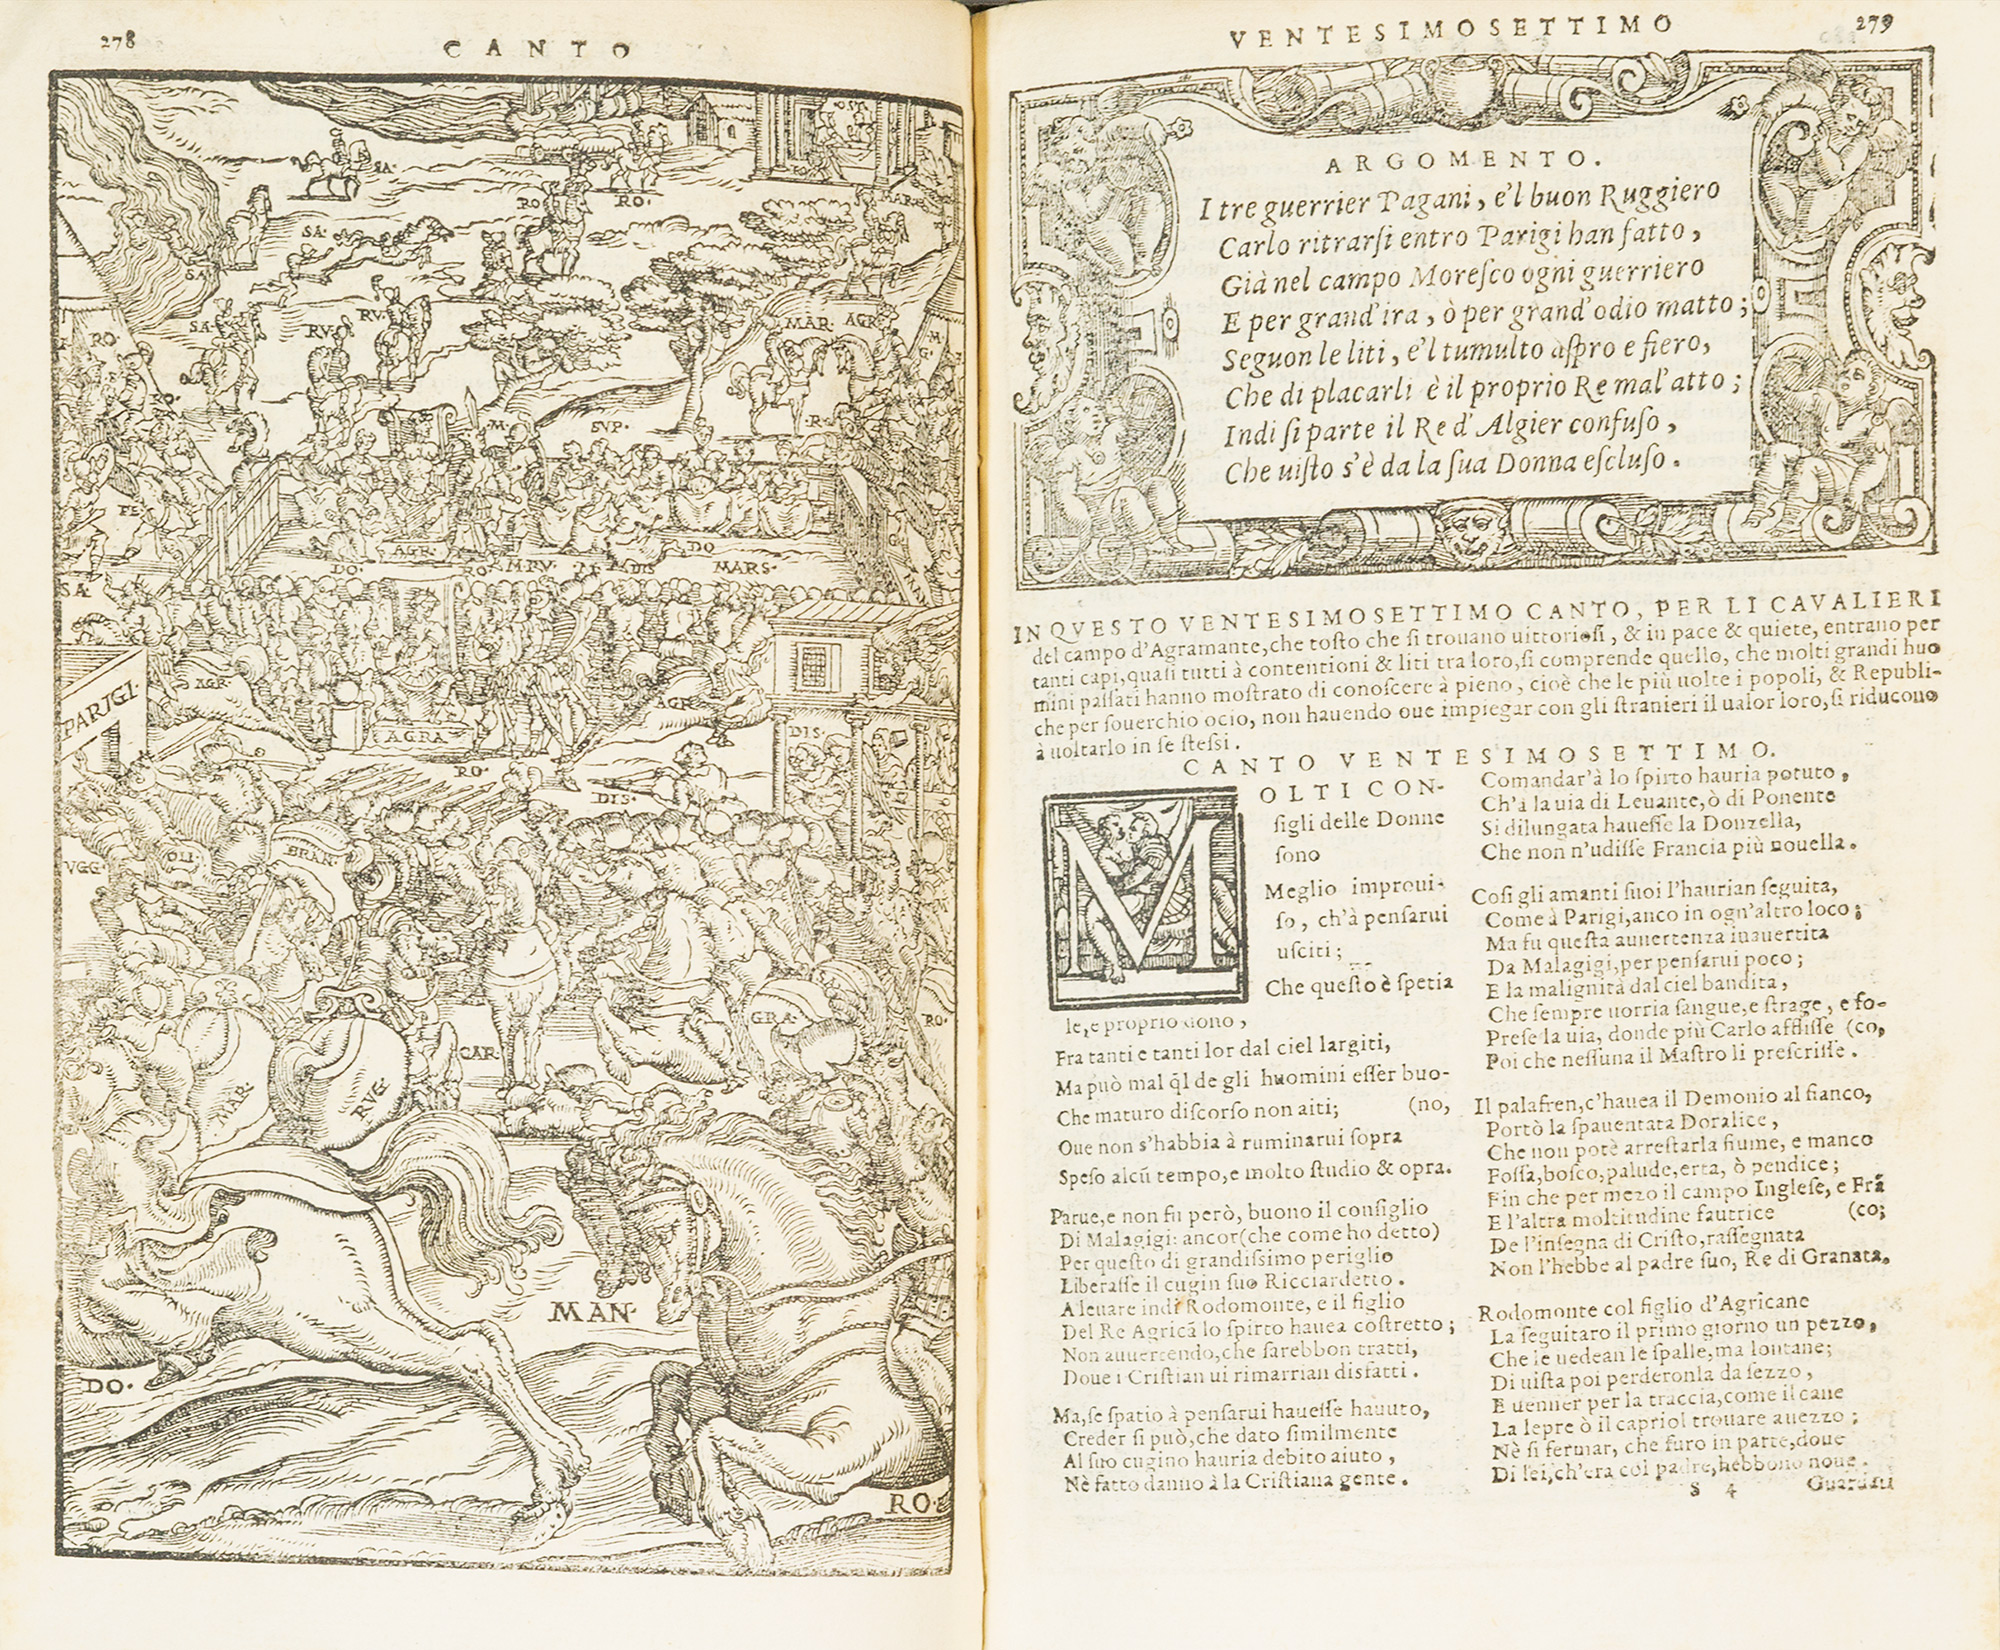 278
CANTO
G
SA·
OST·
RO·
MAR·
RO·
RO·
SA·
SA·
SA·
RV·
RV·
MAR·
AGR·
M
G·
RO·
RO·
M·
SVP·
R·
FE·
AGR·
DO·
RO·
M·RV·
DIS
DO
MARS·
G·
SA·
AGR·
PARIGI·
AGRA·
AGR·
RO·
DIS·
DIS·
VGG·
OLI·
BRAN·
GRA·
RO·
CAR·
MAR·
RVG·
MAN·
DO·
RO·
VENTESIMOSETTIMO
279
ARGOMENTO.
I tre guerrier Pagani, e'l buon Ruggiero
Carlo ritrarſi entro Parigi han fatto,
Già nel campo Moreſco ogni guerriero
E per grand'ira, ò per grand'odio matto;
Seguon le liti, e'l tumulto aſpro e fiero,
Che di placarli è il proprio Re mal'atto;
Indi ſi parte il Re d'Algier confuſo,
Che uiſto s'è da la ſua Donna eſcluſo.
IN QVESTO VENTESIMOSETTIMO CANTO, PER LI CAVALIERI
del campo d'Agramante, che toſto che ſi trouano uittorioſi, & in pace & quiete, entrano per
tanti capi, quaſi tutti à contentioni & liti tra loro, ſi comprende quello, che molti grandi huo
mini paſſati hanno moſtrato di conoſcere à pieno, cioè che le più uolte i popoli, & Republi-
che per ſouerchio ocio, non hauendo oue impiegar con gli ſtranieri il ualor loro, ſi riducono
à uoltarlo in ſe ſteſſi.
CANTO VENTESIMOSETTIMO.
MOLTI CON-
ſigli delle Donne
ſono
Meglio improui-
ſo, ch'à penſarui
uſciti;
Che queſto è ſpetia
le, e proprio dono,
Fra tanti e tanti lor dal ciel largiti,
Ma può mal q̃l de gli huomini eſſer buo-
Che maturo diſcorſo non aiti; (no,
Oue non s'habbia à ruminarui ſopra
Speſo alcũ tempo, e molto ſtudio & opra.
Parue, e non fu però, buono il conſiglio
Di Malagigi: ancor (che come ho detto)
Per queſto di grandiſſimo periglio
Liberaſſe il cugin ſuo Ricciardetto.
A leuare indi Rodomonte, e il figlio
Del Re Agricã lo ſpirto hauea coſtretto;
Non auuertendo, che ſarebbon tratti,
Doue i Criſtian ui rimarrian disfatti.
Ma, ſe ſpatio à penſarui haueſſe hauuto,
Creder ſi può, che dato ſimilmente
Al ſuo cugino hauria debito aiuto,
Nè fatto danno à la Criſtiana gente.
Comandar'à lo ſpirto hauria potuto,
Ch'à la uia di Leuante, ò di Ponente
Si dilungata haueſſe la Donzella,
Che non n'udiſſe Francia più nouella.
Coſi gli amanti ſuoi l'haurian ſeguita,
Come à Parigi, anco in ogn'altro loco;
Ma fu queſta auuertenza inauertita
Da Malagigi, per penſarui poco;
E la malignità dal ciel bandita,
Che ſempre uorria ſangue, e ſtrage, e fo-
Preſe la uia, donde più Carlo affliſſe (co,
Poi che neſſuna il Maſtro li preſcriſſe.
Il palafren, c'hauea il Demonio al fianco,
Portò la ſpauentata Doralice,
Che non potè arreſtarla fiume, e manco
Foſſa, boſco, palude, erta, ò pendice;
Fin che per mezo il campo Ingleſe, e Frã
E l'altra moltitudine fautrice (co;
De l'inſegna di Criſto, raſſegnata
Non l'hebbe al padre ſuo, Re di Granata.
Rodomonte col figlio d'Agricane
La ſeguitaro il primo giorno un pezzo,
Che le uedean le ſpalle, ma lontane;
Di uiſta poi perderonla da ſezzo,
E uenner per la traccia, come il cane
La lepre ò il capriol trouare auezzo;
Nè ſi fermar, che furo in parte, doue
Di lei, ch'era col padre, hebbono noue.
S 4
Guardati